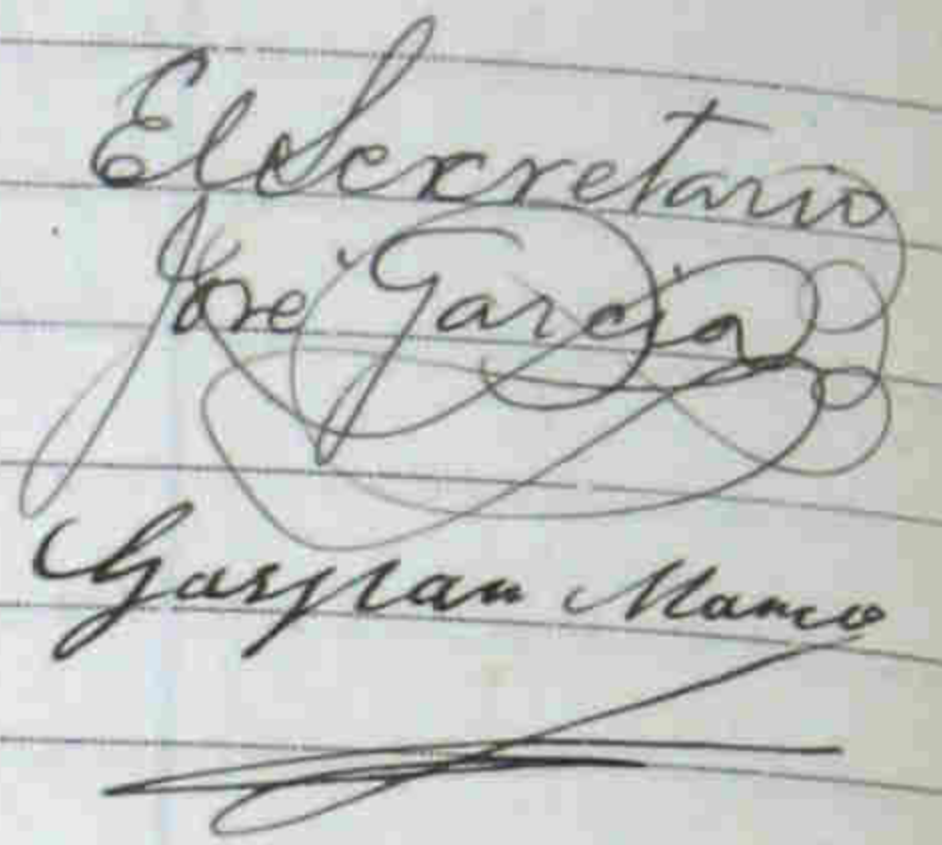 El Secretario
José García
Gaspar Marco